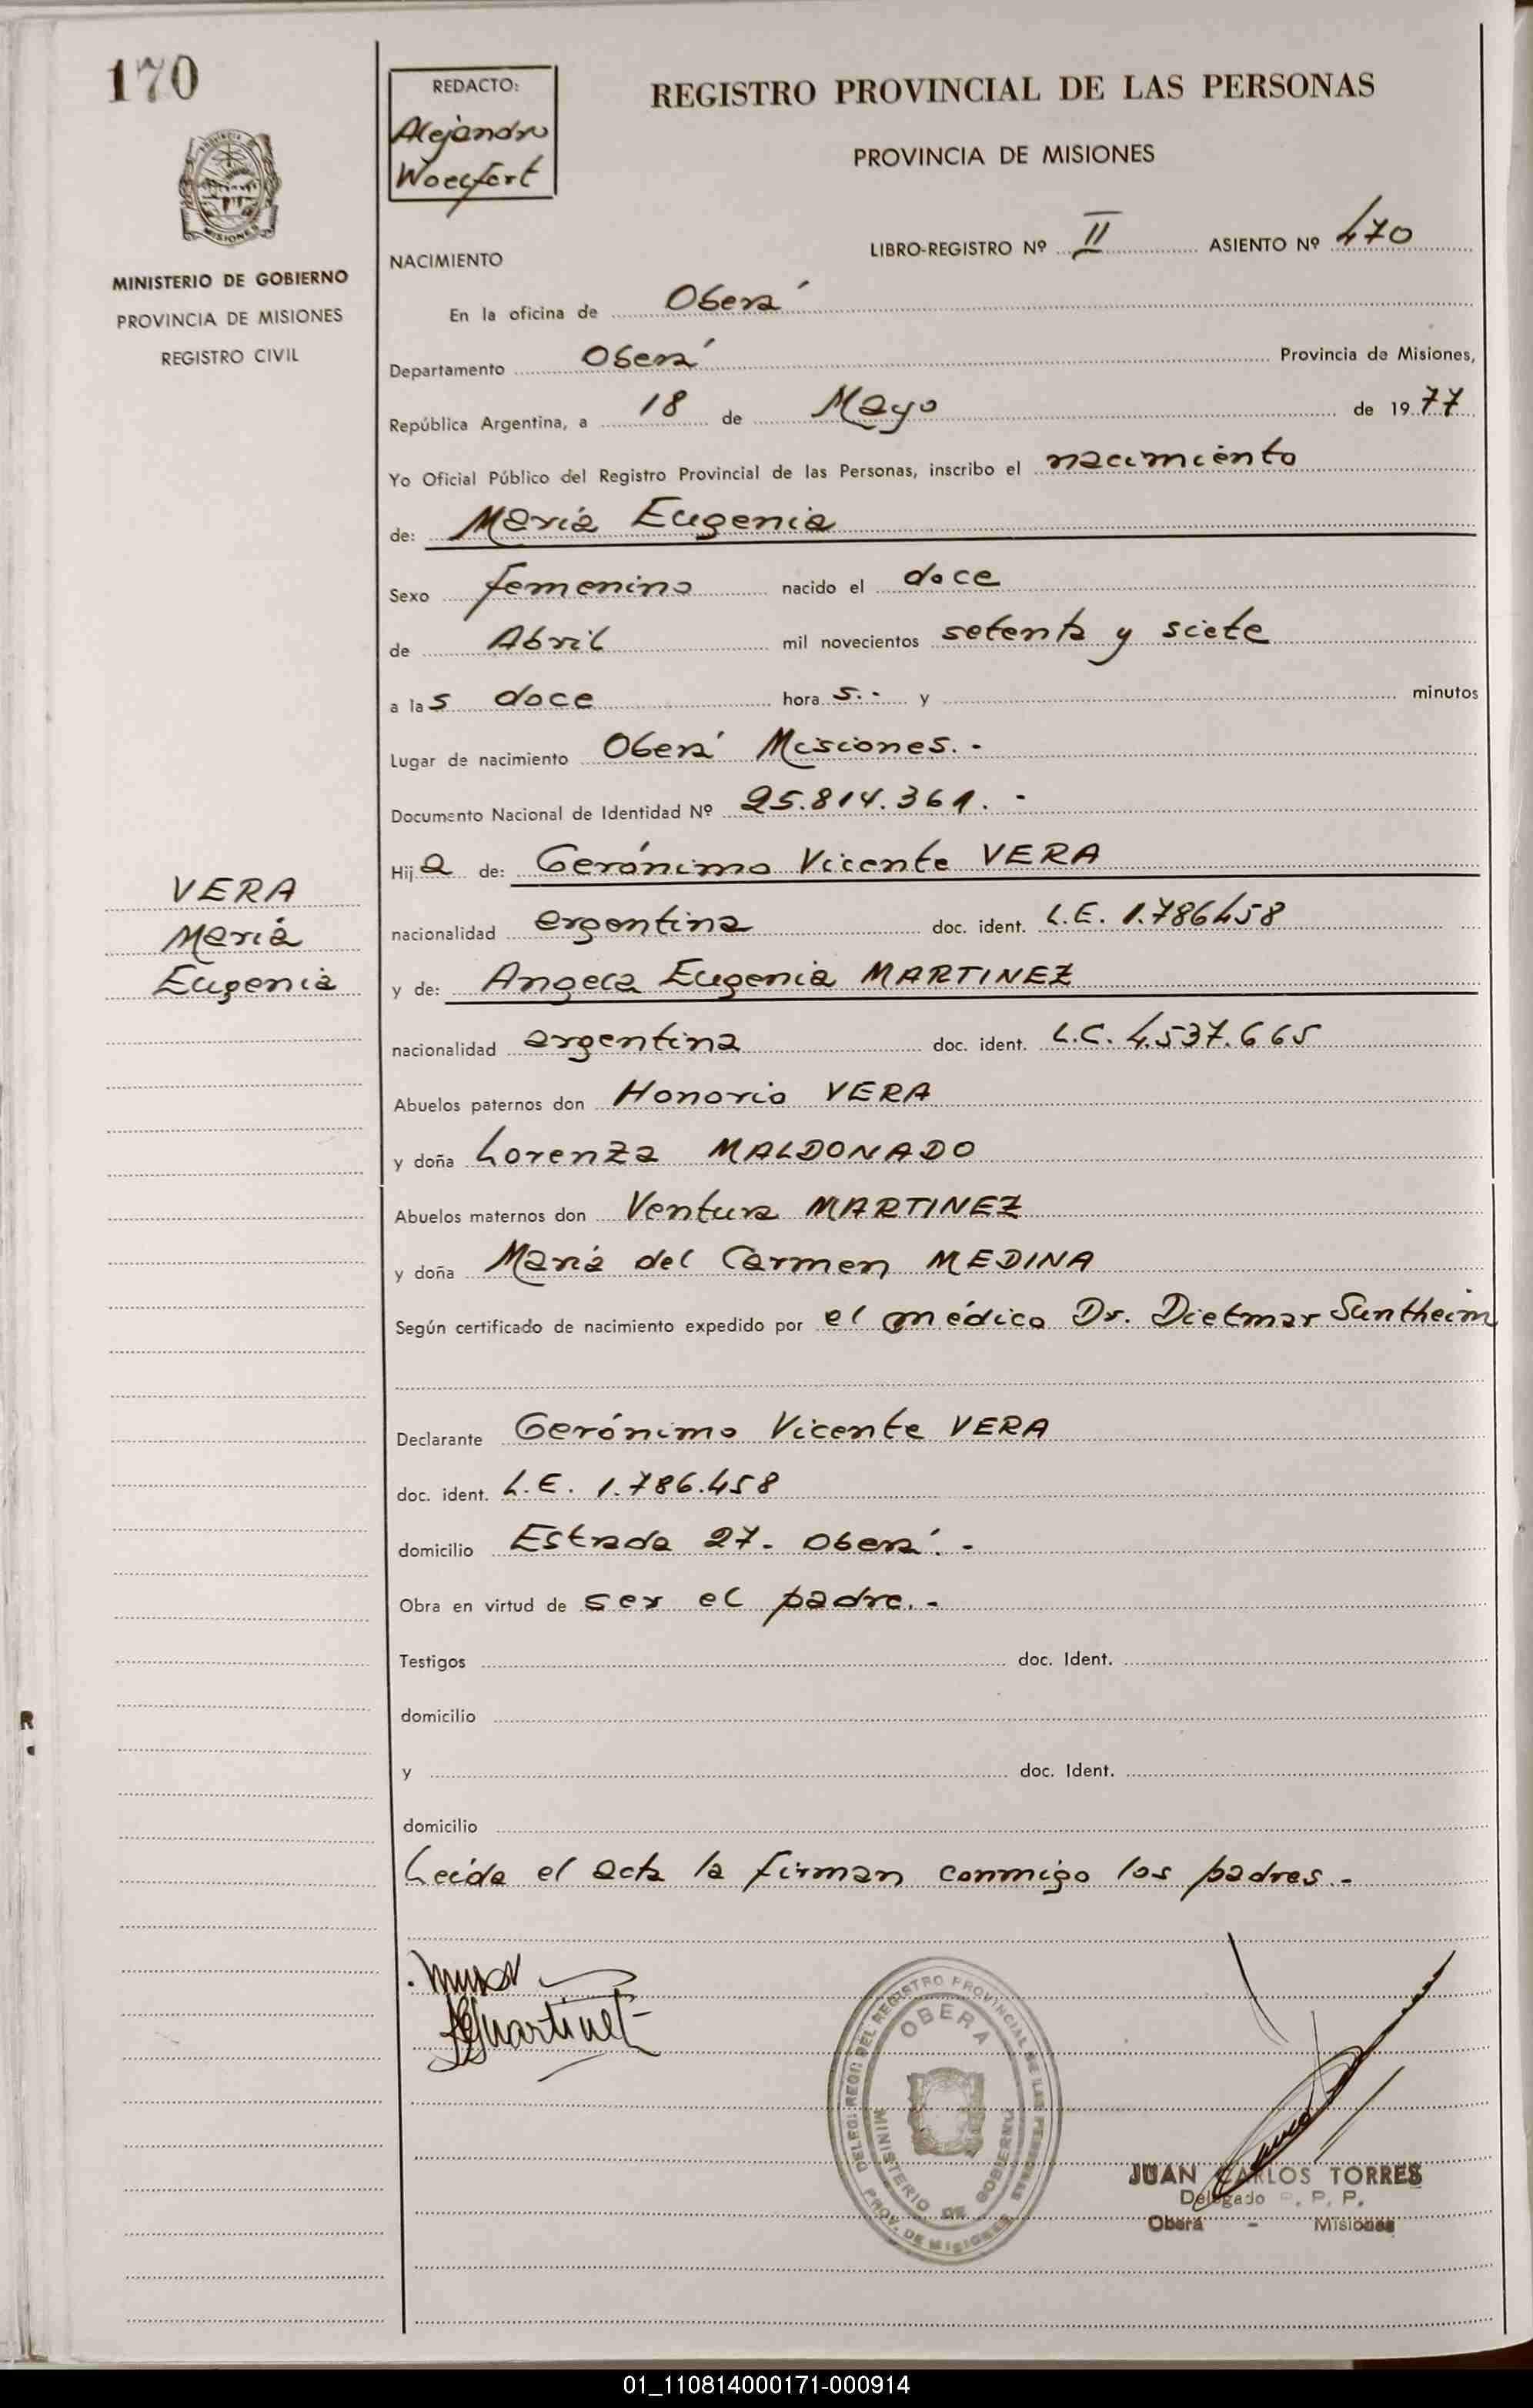 170
REDACTO:
Alejandro
REGISTRO PROVINCIAL DE LAS PERSONAS
PROVINCIA DE MISIONES
MISIONES
MINISTERIO DE GOBIERNO
PROVINCIA DE MISIONES
REGISTRO CIVIL
LIBRO-REGISTRO Nº II ASIENTO Nº 470
NACIMIENTO
En la oficina de Oberá
Departamento Oberá Provincia de Misiones,
República Argentina, a 18 de Mayo de 1977
Yo Oficial Público del Registro Provincial de las Personas, inscribo el nacimiento
de: María Eugenia
Sexo femenino nacido el doce
de Abril mil novecientos setenta y siete
a las doce horas.- y minutos
Lugar de nacimiento Oberá Misiones.-
Documento Nacional de Identidad Nº 25.814.361.-
Hija de: Gerónimo Vicente VERA
VERA
María
Eugenia
nacionalidad argentina doc. ident. L.E. 1.786458
y de: Angela Eugenia MARTINEZ
nacionalidad argentina doc. ident. L.C. 4.537.665
Abuelos paternos don Honorio VERA
y doña Lorenza MALDONADO
Abuelos maternos don Ventura MARTINEZ
y doña María del Carmen MEDINA
Según certificado de nacimiento expedido por el médico Dr. Dietmar Suntheim
Declarante Gerónimo Vicente VERA
doc. ident. L.E. 1.786.458
domicilio Estrada 27. Oberá.-
Obra en virtud de ser el padre.-
Testigos doc. Ident.
domicilio
y doc. Ident.
domicilio
Leída el acta la firman conmigo los padres.-
DELEG: REGI: DEL REGISTRO PROVINCIAL DE LAS PERSONAS
OBERA
MINISTERIO DE GOBIERNO
PROV. DE MISIONES
JUAN CARLOS TORRES
Delegado P. P.
Oberá - Misiones
R
01_110814000171-000914